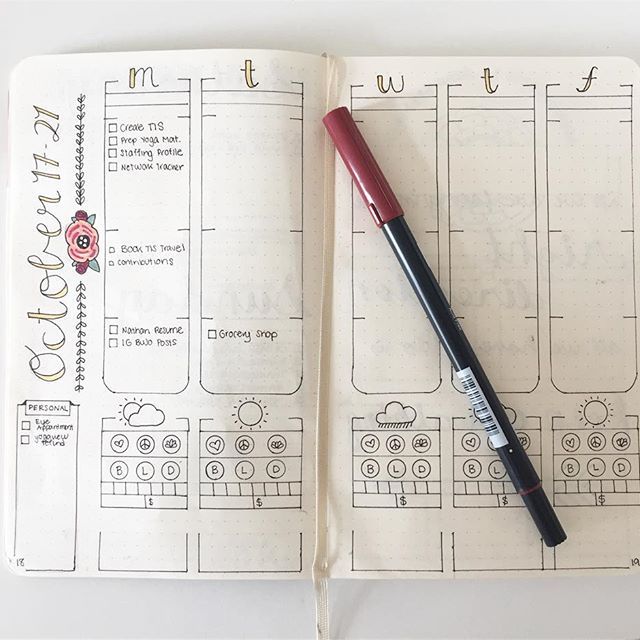 October 17-21
m
t
w
t
f
Create TIS
Prep Yoga Mat.
Staffing Profile
Network Tracker
Book TIS Travel
contributions
Nathan Resume
IG BUJO Posts
Grocery Shop
PERSONAL
Eye
Appointment
yogaview
refund
B L D
B L D
B L D
B L D
B L D
$
$
$
$
18
19